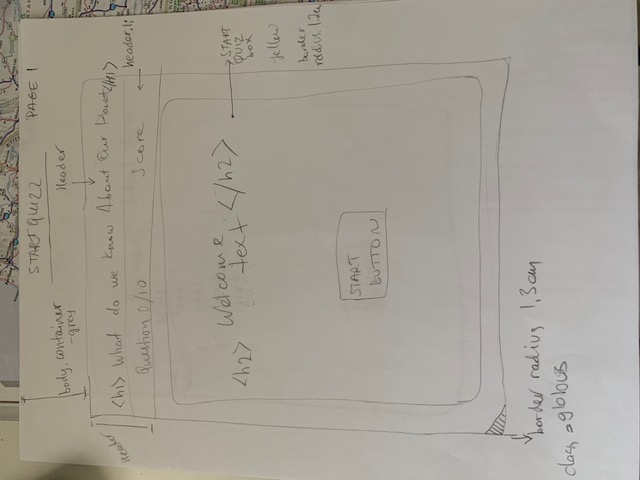 START QUIZZ
PAGE 1
body.container
-grey
Header
Header
<h1> What do we know About Our Planet</H1>
Question 0/10
Score
header.li
<h2> Welcome
text </h2>
START
QUIZ
box
yellow
border
radius 1.2cm
START
BUTTON
border radius 1,3cm
class = globus